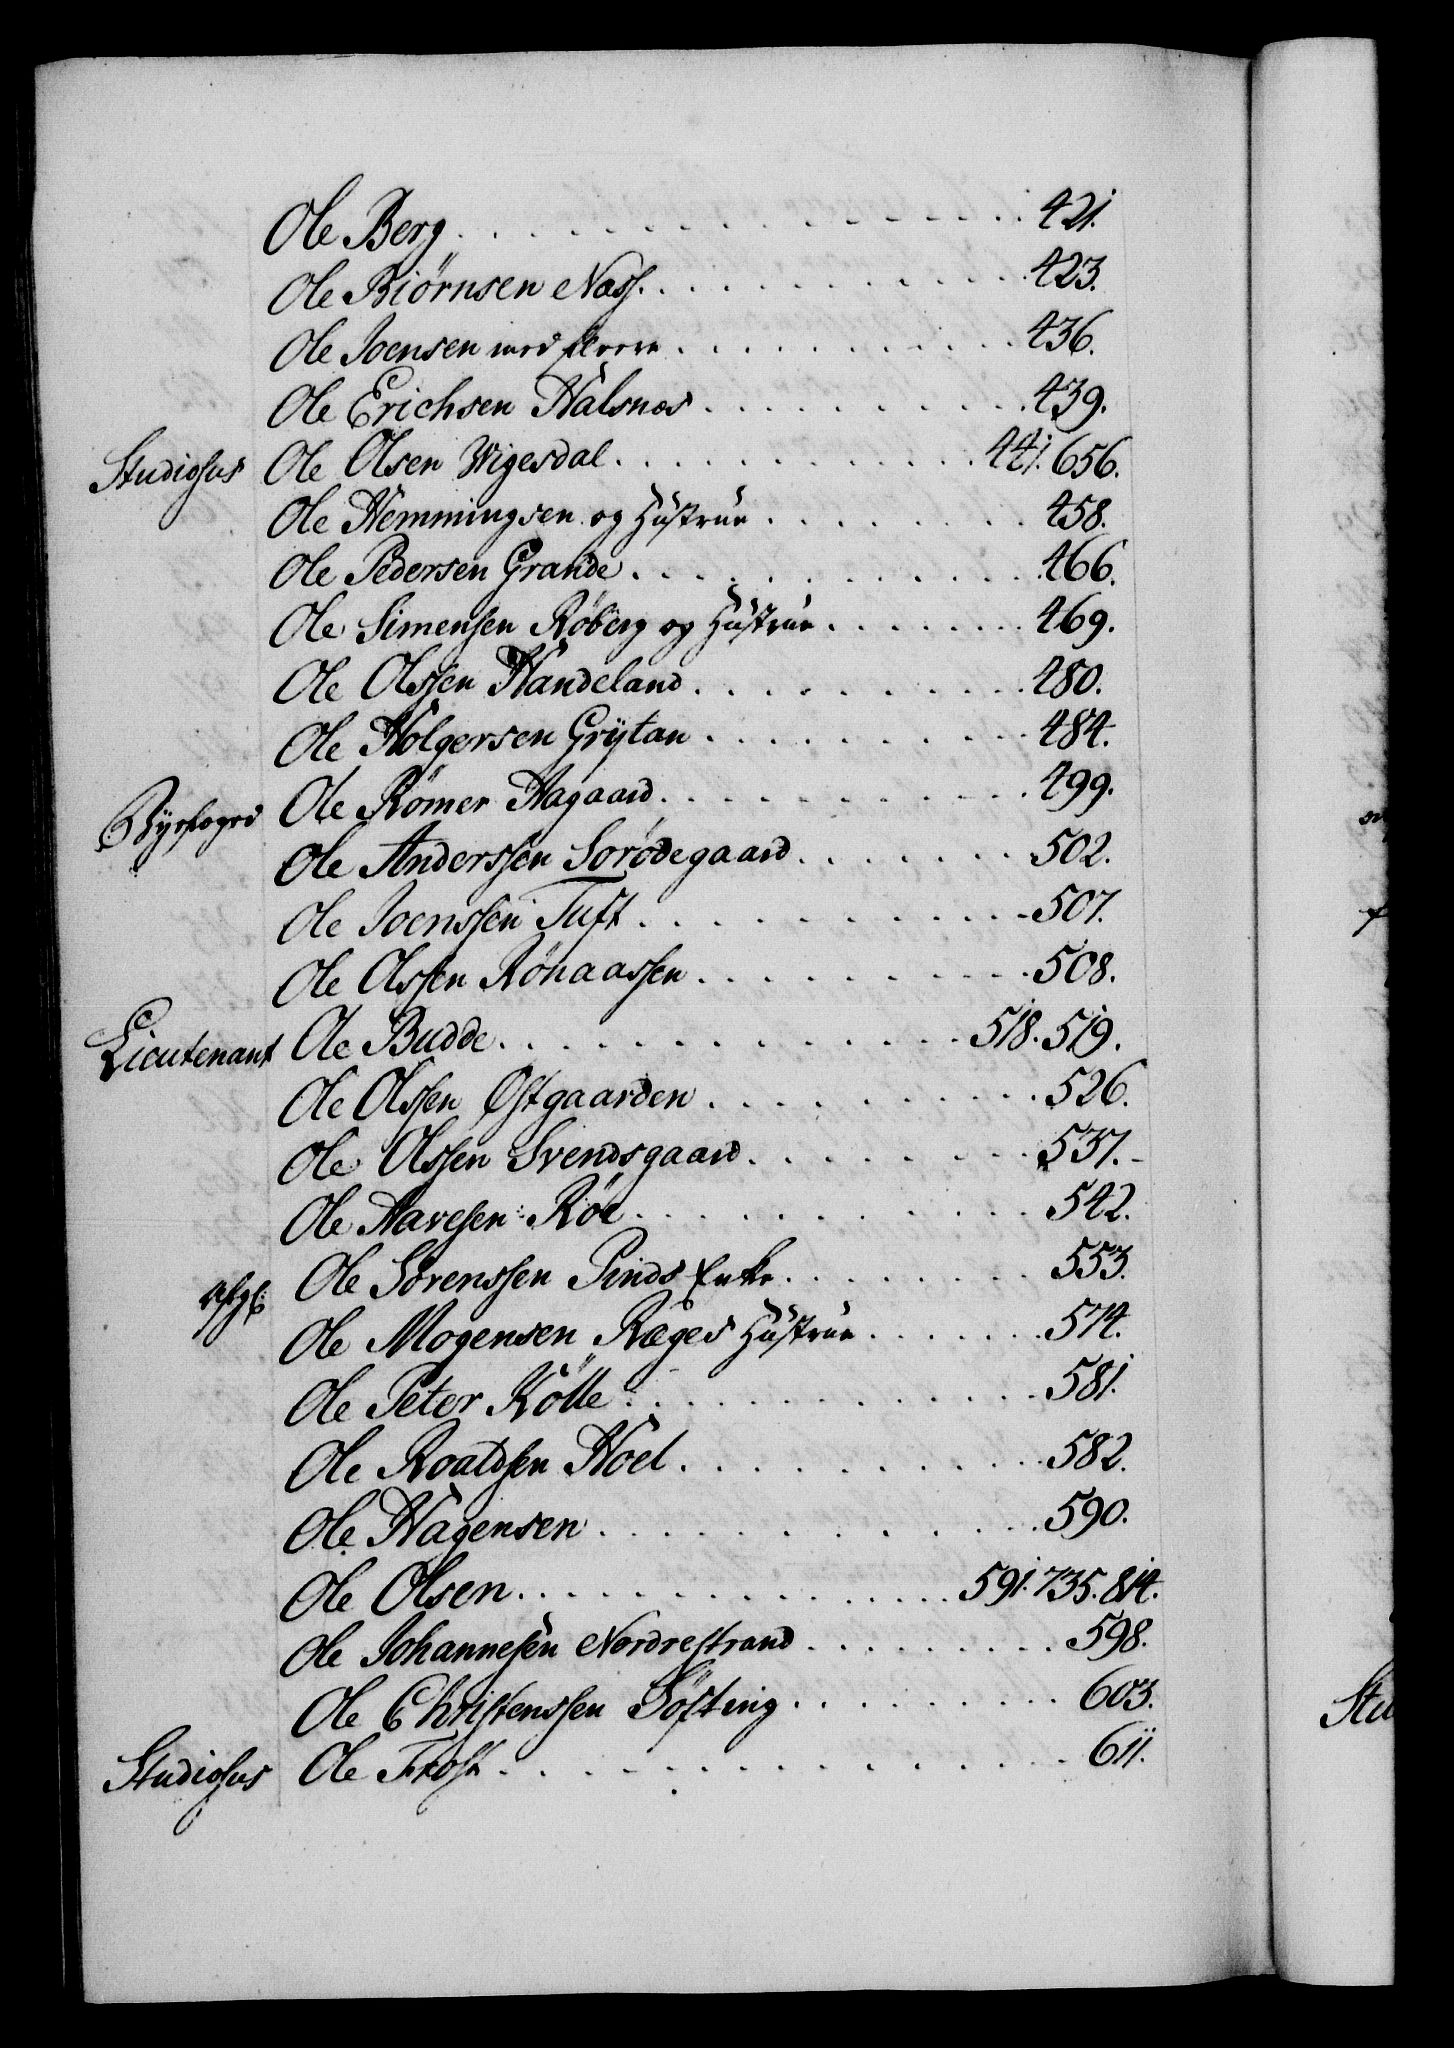 Ole Berg . . . . . . . . . . . . . . 421.
Ole Biørnsen Næss. . . . . . . . . . . 423.
Ole Joensen med fleere . . . . . . . . . 436.
Ole Erichsen Halsnæs . . . . . . . . . 439.
Studiosus Ole Olsen Wigesdal . . . . . . . . . . 441. 656.
Ole Hemmingsen og Hustrue . . . . . . . 458.
Ole Pedersen Grande . . . . . . . . . . 466.
Ole Simensen Røberg og Hustrue . . . . . . 469.
Ole Olssen Handeland . . . . . . . . . 480.
Ole Holgersen Grÿtan . . . . . . . . . 484.
Bÿefoged Ole Rømer Aagaard . . . . . . . . . 499.
Ole Anderssen Sorødegaard . . . . . . . 502.
Ole Joenssen Tuft . . . . . . . . . . 507.
Ole Olssen Rønaassen . . . . . . . . . 508.
Lieutenant Ole Budde . . . . . . . . . . . . 518. 519.
Ole Olssen Østgaarden . . . . . . . . . 526.
Ole Olssen Svendsgaard . . . . . . . . 537.
Ole Aavesen Røe . . . . . . . . . . . 542.
afg: Ole Sørenssen Pinds Enke . . . . . . . 553.
Ole Mogensen Ræges Hustrue . . . . . . 574.
Ole Peter Kølle . . . . . . . . . . . 581.
Ole Roaldsen Hoel . . . . . . . . . . 582.
Ole Hagensen . . . . . . . . . . . . 590.
Ole Olsen . . . . . . . . . . . . . 591. 735. 814.
Ole Johannesen Nordrestrand . . . . . . . 598.
Ole Christenssen Gøsting . . . . . . . . 603.
Studiosus Ole Frost . . . . . . . . . . . . . 611.
Stu